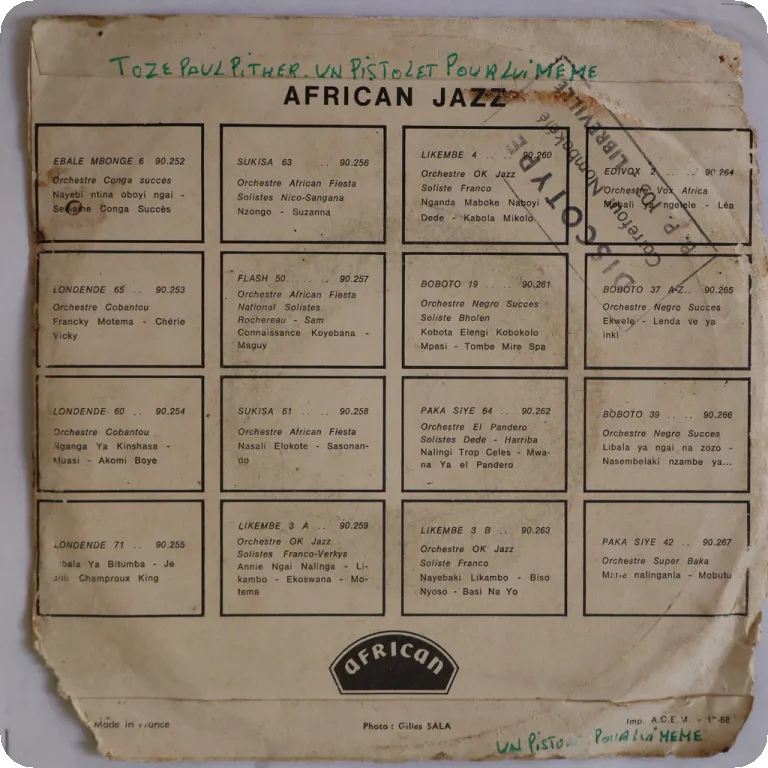 TOZE PAUL PITHER. UN PISTOLET POUR LUI MEME
AFRICAN JAZZ
EBALE MBONGE 6 90.252
Orchestre Conga succes
Nayebi ntina oboyi ngai -
Semaine Conga Succès
SUKISA 63 .. 90.256
Orchestre African Fiesta
Solistes Nico-Sangana
Nzongo - Suzanna
LIKEMBE 4 .. .. 90.260
Orchestre OK Jazz
Soliste Franco
Nganda Maboke Naboyi
Dede - Kabola Mikolo
EDIVOX 2 .. .. 90 264
Orchestre Vox Africa
Mobali ya ngelele - Léa
DISCOTYPE
Carrefour Nombakélé
B. P. 109 LIBREVILLE
LONDENDE 65 .. 90.253
Orchestre Cobantou
Francky Motema - Chérie
Vicky
FLASH 50 .. .. .. 90.257
Orchestre African Fiesta
National Solistes
Rochereau - Sam
Connaissance Koyebana -
Maguy
BOBOTO 19 .. .. 90.261
Orchestre Negro Succes
Soliste Bholen
Kobota Elengi Kobokolo
Mpasi - Tombe Mire Spa
BOBOTO 37 A-Z.. 90.265
Orchestre Negro Succes
Ekwele - Lenda ve ya
inki
LONDENDE 60 .. 90.254
Orchestre Cobantou
Nganga Ya Kinshasa -
Muasi - Akomi Boye
SUKISA 61 .. .. 90.258
Orchestre African Fiesta
Nasali Elokote - Sasonan-
do
PAKA SIYE 64 .. 90.262
Orchestre El Pandero
Solistes Dede - Harriba
Nalingi Trop Celes - Mwa-
na Ya el Pandero
BOBOTO 39 .. .. 90.266
Orchestre Negro Succes
Libala ya ngai na zozo -
Nasembelaki nzambe ya...
LONDENDE 71 .. 90.255
Ya Bitumba - Je
Champroux King
LIKEMBE 3 A .. 90.259
Orchestre OK Jazz
Solistes Franco-Verkys
Annie Ngai Nalinga - Li-
kambo - Ekoswana - Mo-
tema
LIKEMBE 3 B .. 90.263
Orchestre OK Jazz
Soliste Franco
Nayebaki Likambo - Biso
Nyoso - Basi Na Yo
PAKA SIYE 42 .. 90.267
Orchestre Super Baka
nalinganla - Mobutu
AFRICAN
Made in France
Photo : Gilles SALA
Imp. A.C.E.M. -
UN PISTOLET POUR LUI MEME